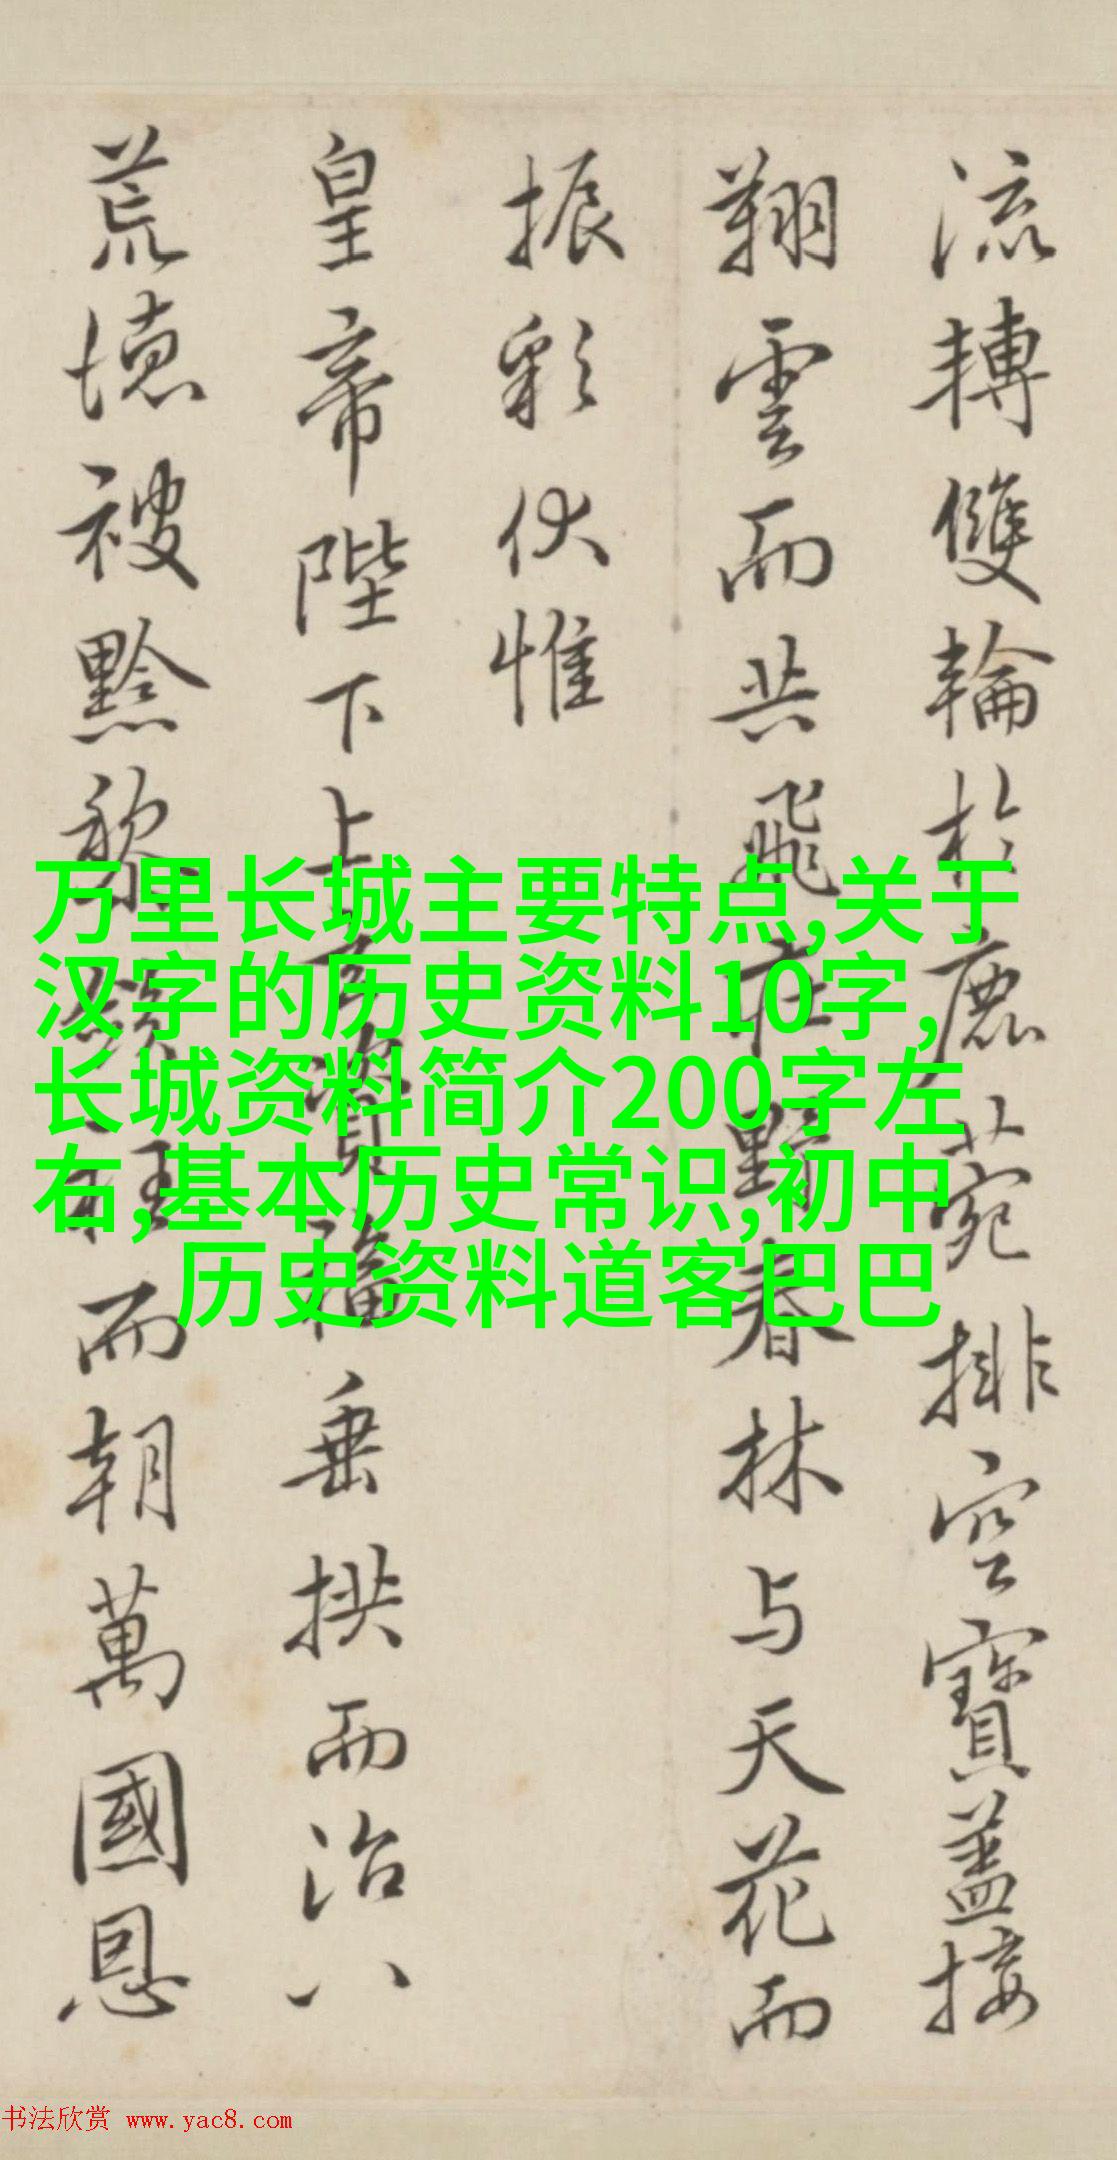 流轉雙輪於鹿菀排空寶蓋接
翔雲而共飛莊野春林与天花而
振彩伏惟
皇帝陛下上玄資福垂拱而治八
荒徳被黔黎斂衽而朝萬國恩
万里长城主要特点,关于
汉字的历史资料10字,
长城资料简介200字左
右,基本历史常识,初中
历史资料道客巴巴
书法欣赏 www.yac8.com